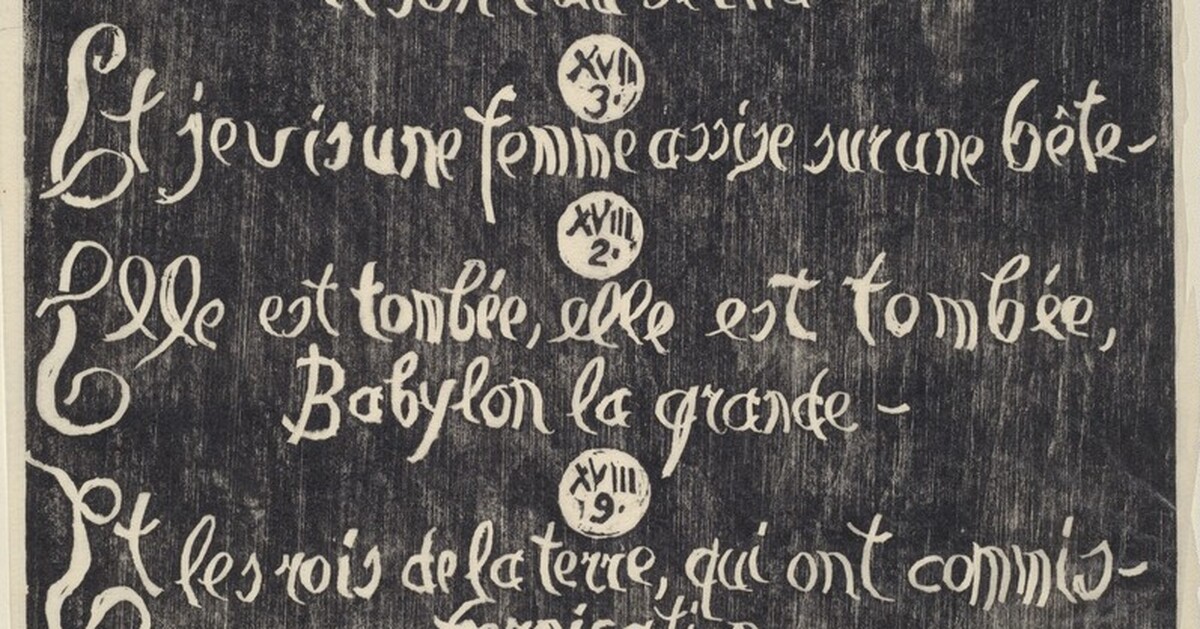 XVII
3.
Et je vis une femme assise sur une bête-
XVIII
2.
Elle est tombée, elle est tombée,
Babylon la grande -
XVIII
9.
Et les rois de la terre, qui ont commis-
fornication